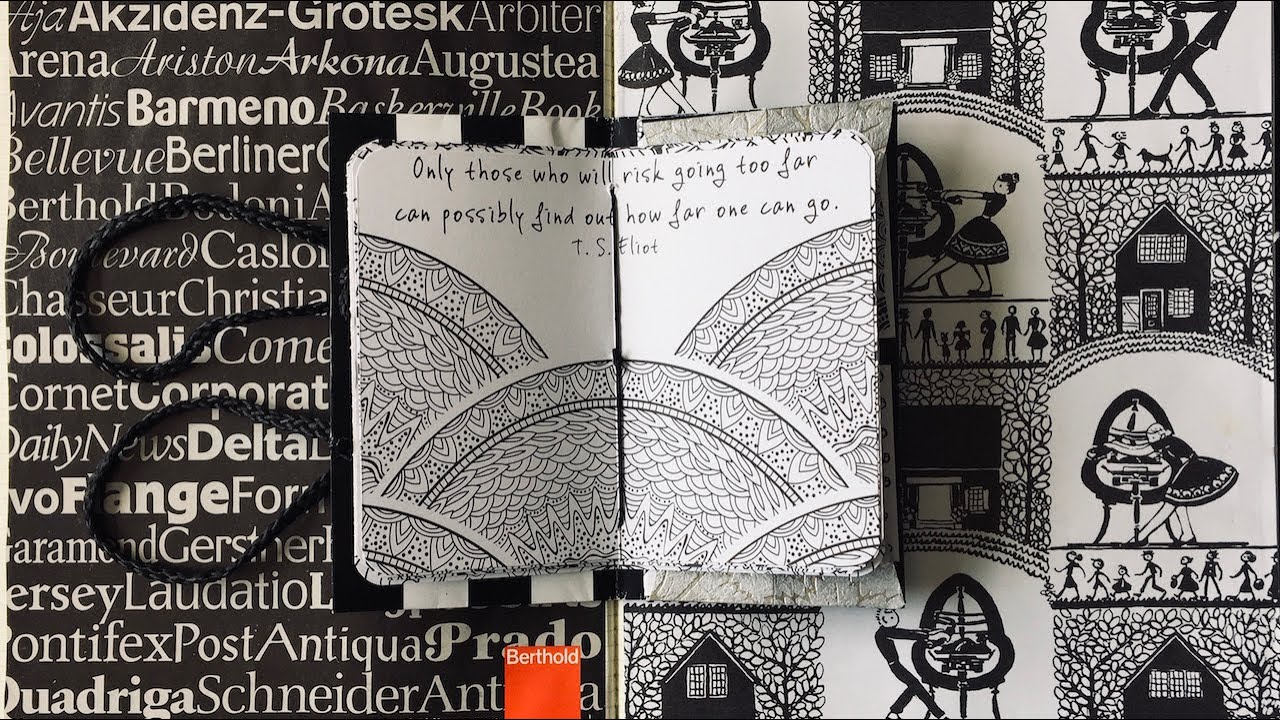 Aja Akzidenz-Grotesk Arbiter
Arena Ariston Arkona Augustea
Avantis Barmeno Baskerville Book
Bellevue Berliner
Berthold Bodoni
Boulevard Caslon
Chasseur Christia
Colossalis Come
Cornet Corporat
Daily News Delta
Evo Flange For
Garamond Gerstner
Jersey Laudatio
Pontifex Post Antiqua Prado
Quadriga Schneider
Berthold
Only those who will risk going too far
can possibly find out how far one can go.
T. S. Eliot